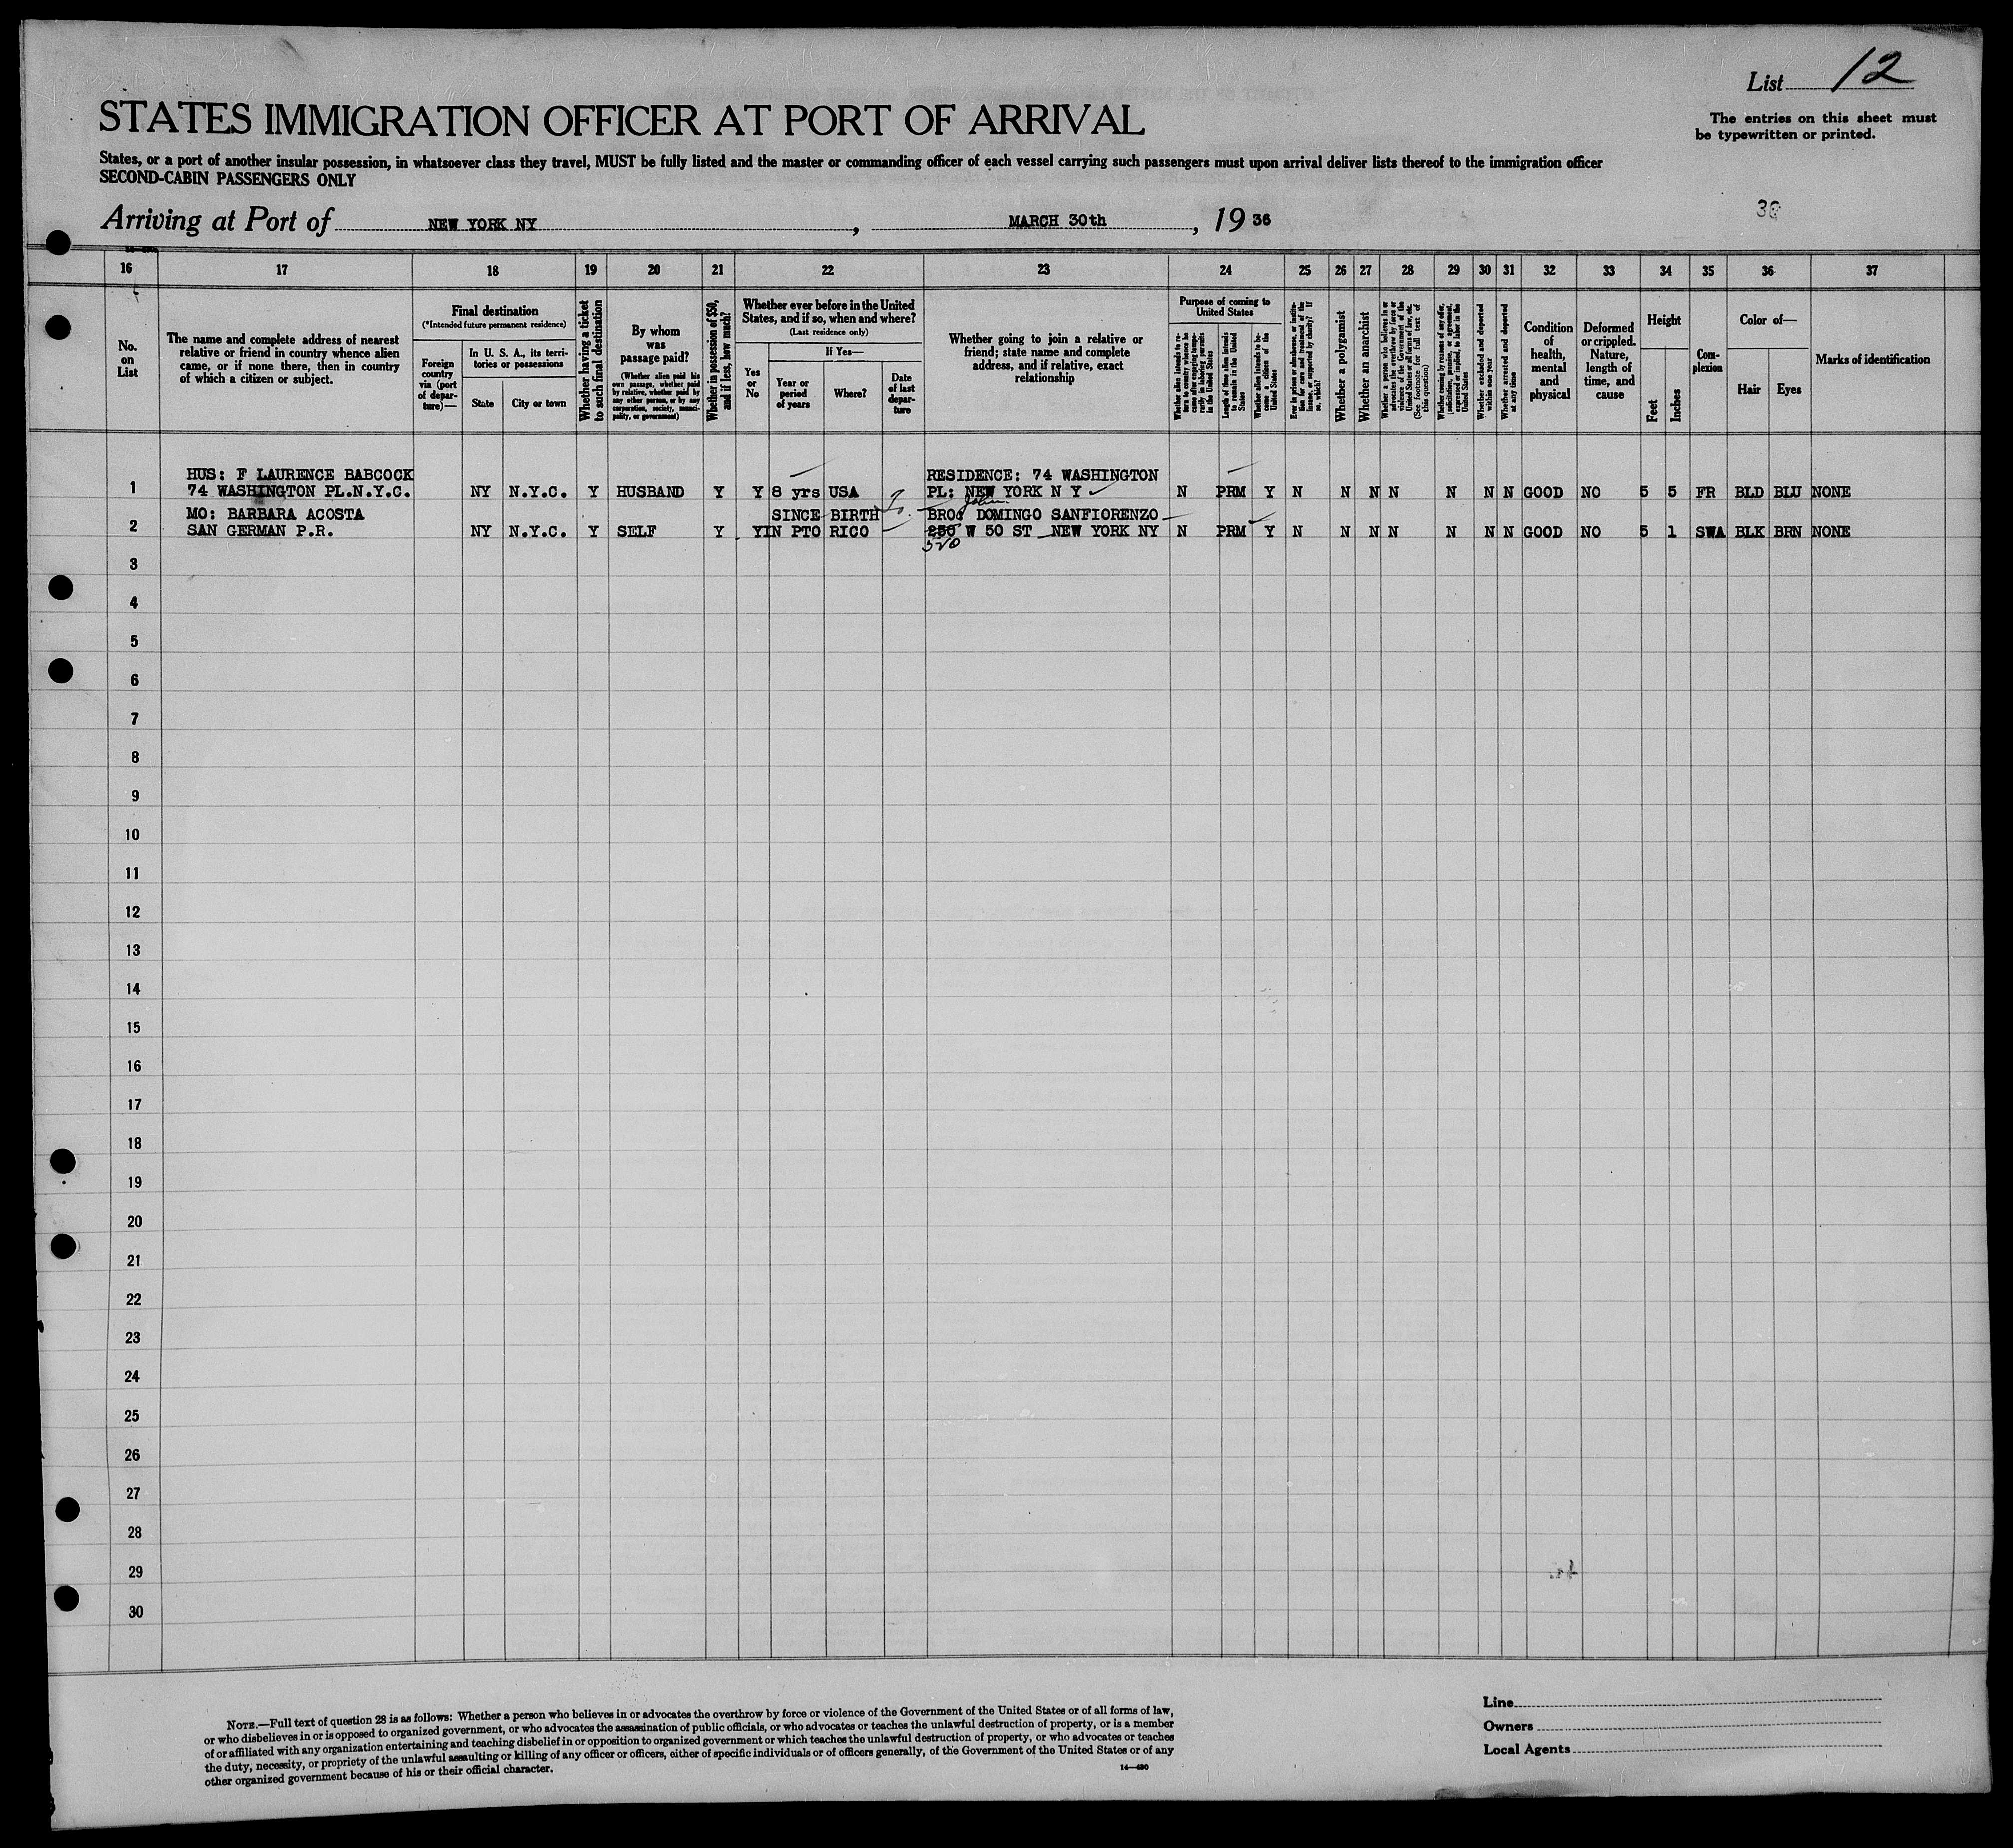 List 12
The entries on this sheet must
be typewritten or printed.
STATES IMMIGRATION OFFICER AT PORT OF ARRIVAL
States, or a port of another insular possession, in whatsoever class they travel, MUST be fully listed and the master or commanding officer of each vessel carrying such passengers must upon arrival deliver lists thereof to the immigration officer
SECOND-CABIN PASSENGERS ONLY
Arriving at Port of NEW YORK NY, MARCH 30th, 19 36
16 17 18 19 20 21 22 23 24 25 26 27 28 29 30 31 32 33 34 35 36 37
No.
on
List
The name and complete address of nearest
relative or friend in country whence alien
came, or if none there, then in country
of which a citizen or subject.
Final destination
(*Intended future permanent residence)
Foreign
country
via (port
of depar-
ture)—
In U. S. A., its terri-
tories or possessions
State
City or town
Whether having a ticket
to such final destination
By whom
was
passage paid?
(Whether alien paid his
own passage, whether paid
by relative, whether paid by
any other person, or by any
corporation, society, munici-
pality, or government)
Whether in possession of $50,
and if less, how much?
Whether ever before in the United
States, and if so, when and where?
(Last residence only)
Yes
or
No
If Yes—
Year or
period
of years
Where?
Date
of last
depar-
ture
Whether going to join a relative or
friend; state name and complete
address, and if relative, exact
relationship
Purpose of coming to
United States
Whether alien intends to re-
turn to country whence he
came after engaging tempo-
rarily in laboring pursuits
in the United States
Length of time alien intends
to remain in the United
States
Whether alien intends to be-
come a citizen of the
United States
Ever in prison or almshouse, or institu-
tion for care and treatment of the
insane, or supported by charity? If
so, which?
Whether a polygamist
Whether an anarchist
Whether a person who believes in or
advocates the overthrow by force or
violence of the Government of the
United States or all forms of law, etc.
(See footnote for full text of
this question)
Whether coming by reasons of any offer,
solicitation, promise, or agreement,
expressed or implied, to labor in the
United States
Whether excluded and deported
within one year
Whether arrested and deported
at any time
Condition
of
health,
mental
and
physical
Deformed
or crippled.
Nature,
length of
time, and
cause
Height
Feet
Inches
Com-
plexion
Color of—
Hair
Eyes
Marks of identification
HUS: F LAURENCE BABCOCK RESIDENCE: 74 WASHINGTON
1 74 WASHINGTON PL.N.Y.C. NY N.Y.C. Y HUSBAND Y Y 8 yrs USA PL: NEW YORK N Y N PRM Y N N N N N N N GOOD NO 5 5 FR BLD BLU NONE
John
MO: BARBARA ACOSTA SINCE BIRTH BRO: DOMINGO SANFIORENZO
2 SAN GERMAN P.R. NY N.Y.C. Y SELF Y Y IN PTO RICO 250 W 50 ST NEW YORK NY N PRM Y N N N N N N N GOOD NO 5 1 SWA BLK BRN NONE
520
3
4
5
6
7
8
9
10
11
12
13
14
15
16
17
18
19
20
21
22
23
24
25
26
27
28
29
30
NOTE.—Full text of question 28 is as follows: Whether a person who believes in or advocates the overthrow by force or violence of the Government of the United States or of all forms of law,
or who disbelieves in or is opposed to organized government, or who advocates the assassination of public officials, or who advocates or teaches the unlawful destruction of property, or is a member
of or affiliated with any organization entertaining and teaching disbelief in or opposition to organized government or which teaches the unlawful destruction of property, or who advocates or teaches
the duty, necessity, or propriety of the unlawful assaulting or killing of any officer or officers, either of specific individuals or of officers generally, of the Government of the United States or of any
other organized government because of his or their official character.
14—480
Line
Owners
Local Agents